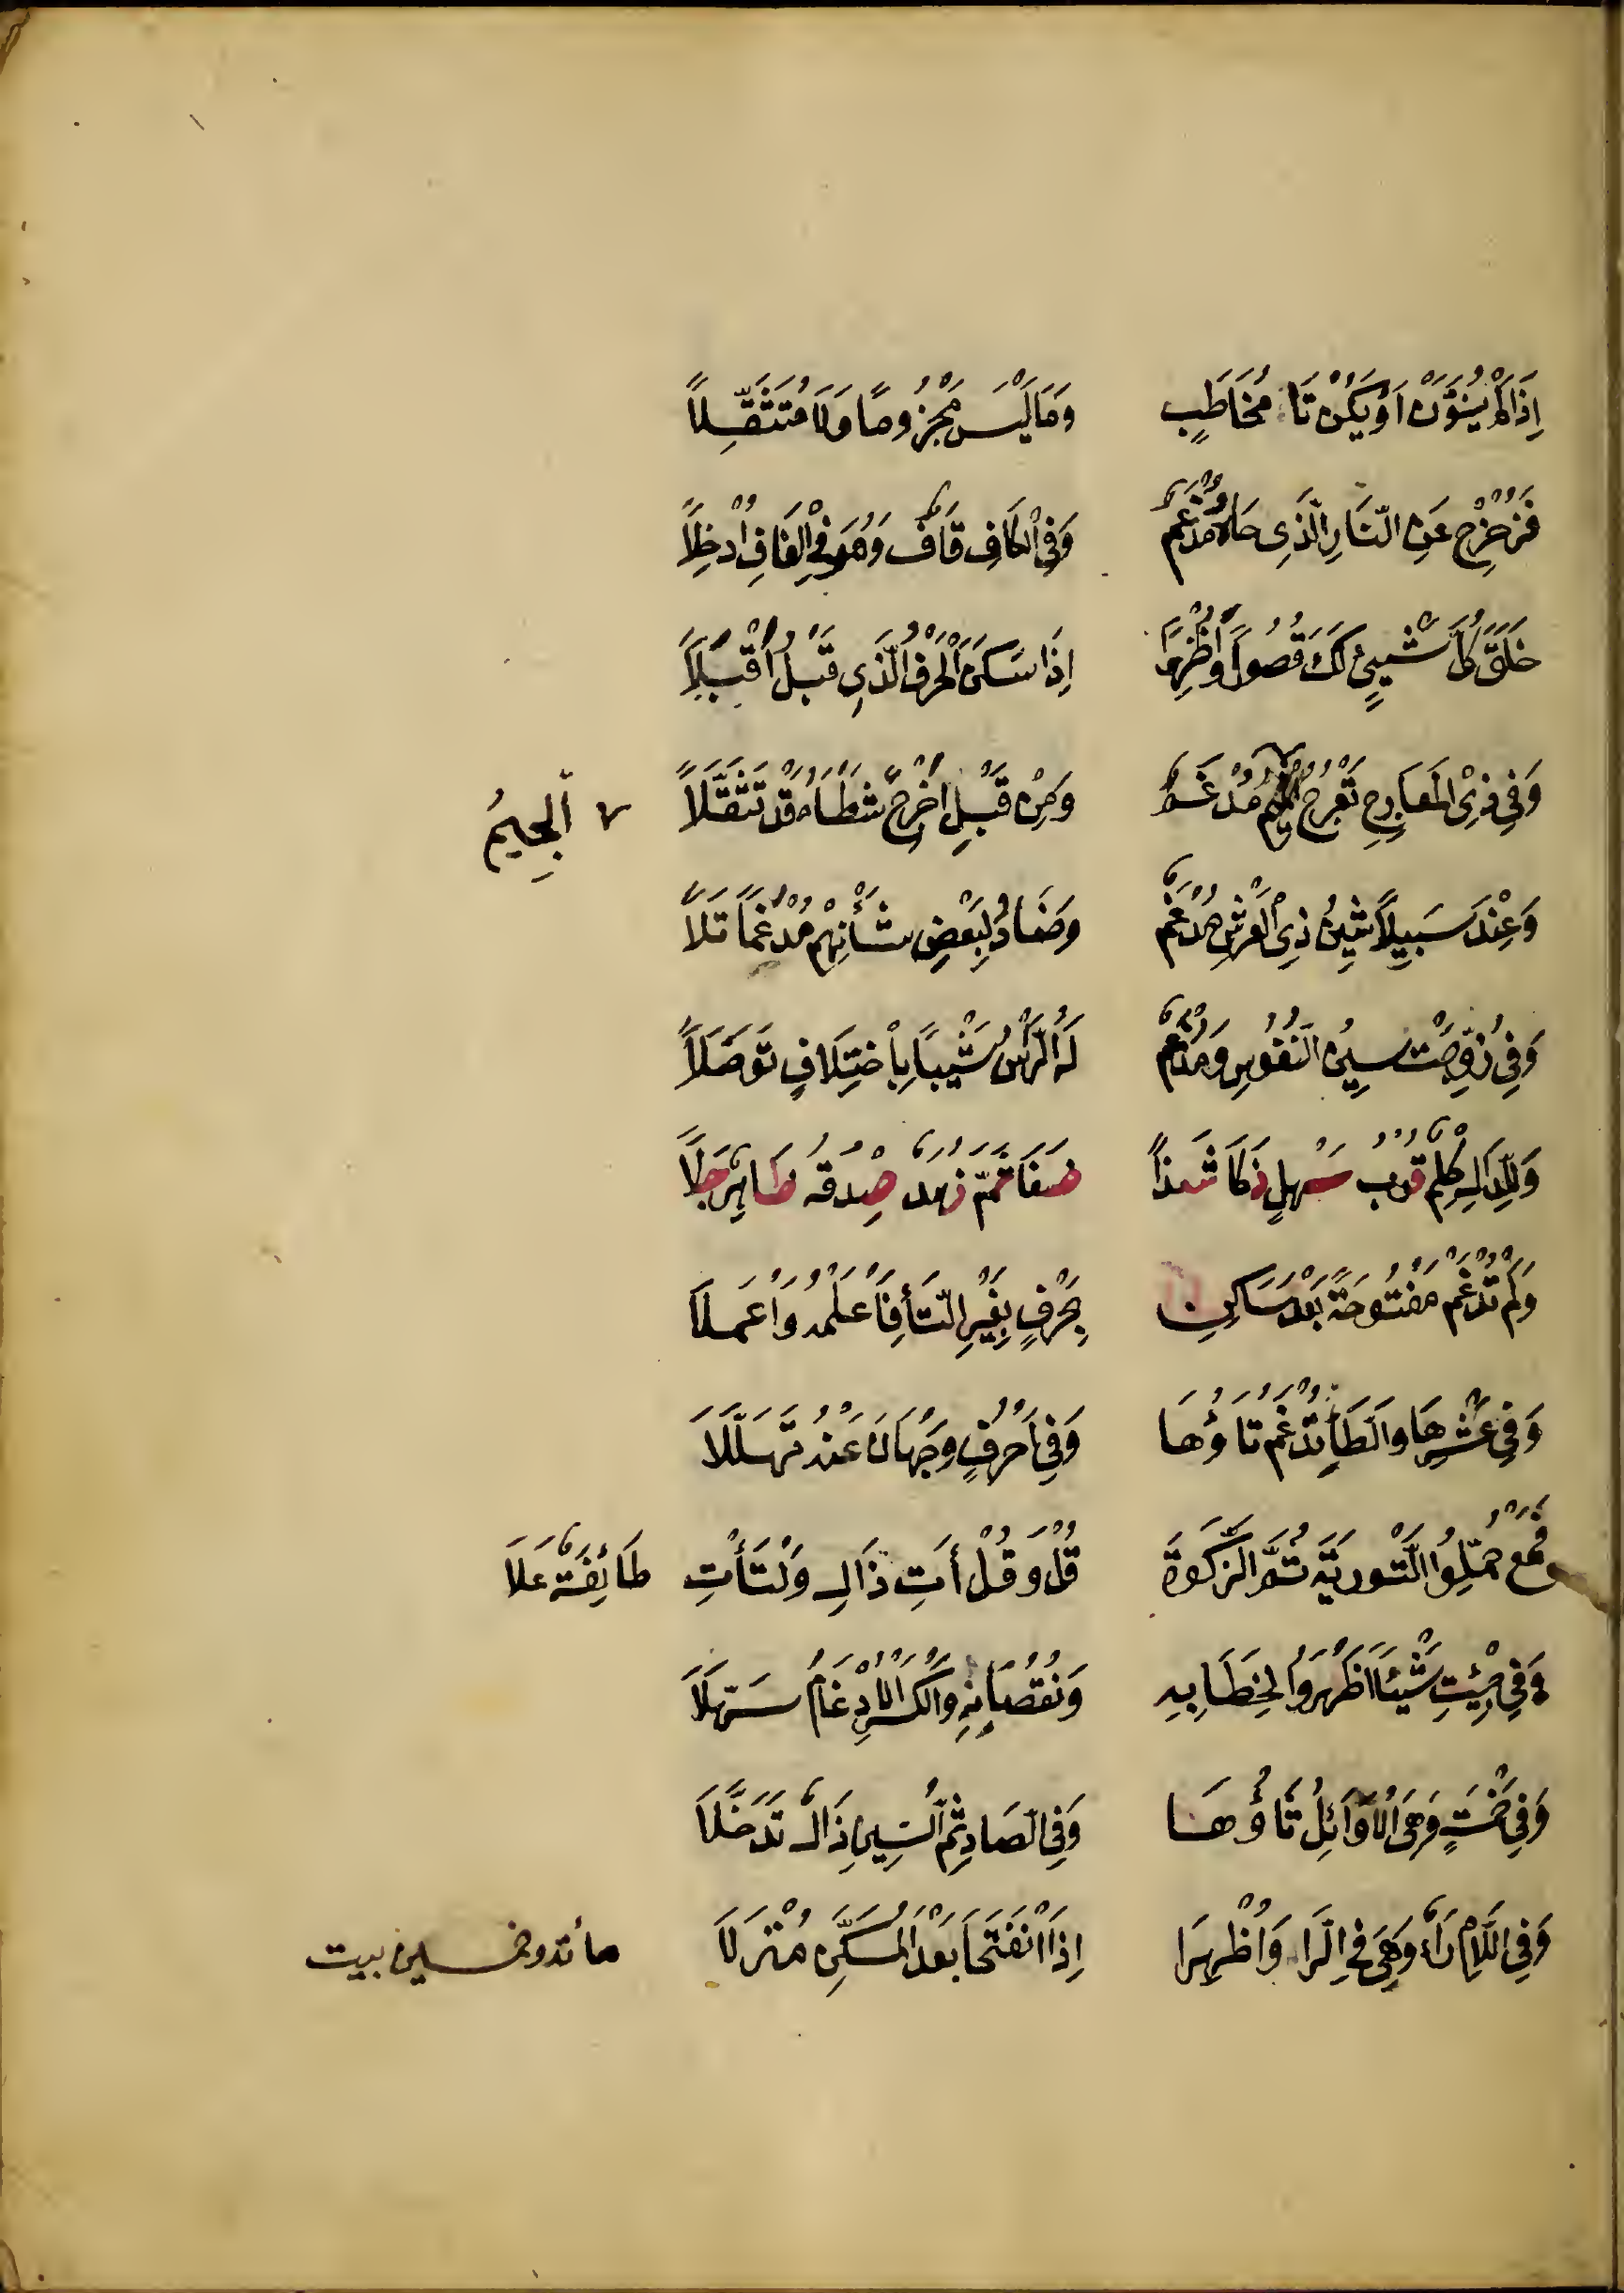 إِذَا لَمْ يُنَوَّنْ أَوْ يَكُنْ تَا مُخَاطَبٍ وَمَا لَيْسَ مَجْزُومًا وَلَا مُتَثَقِّلًا
فَزُحْزِحَ عَنِ النَّارِ الَّذِى حَاهُ مُدْغَمٌ وَفِى الْكَافِ قَافٌ وَهُوَ فِى الْقَافِ اُدْخِلَا
خَلَقْ كُلَّ شَيْىٍٔ لَكَ قُصُوْرًا وَاُظْهِرَا إِذَا سَكَنَ الْحَرْفُ الَّذِى قَبْلُ اُقْبِلَا
وَفِى ذِىْ الْمَعَارِجِ تَعْرُجُ مُدْغَمٌ وَمِنْ قَبْلِ اَخْرَجَ شَطْأَهُ قَدْ تَثَقَّلَا ٧ اَلْجِيمُ
وَعِنْدَ سَبِيلًا شِيْنُ ذِىْ الْعَرْشِ مُدْغَمٌ وَضَادُ لِبَعْضِ شَأْنِهِمْ مُدْغَمًا تَلَا
وَفِى زُوِّجَتْ سِيْنُ النُّفُوسِ وَمُدْغَمٌ لَهُ الرَّأْسُ شَيْبًا بِاخْتِلَافٍ تَوَصَّلَا
وَلِلدَّالِ كِلْمٌ قُرْبُ سَهْلٍ ذَكَا شَذًا ضَفَا ثَمَّ زُهْدٌ صِدْقُهُ ظَاهِرٌ جَلَا
وَلَمْ تُدْغَمْ مَفْتُوحَةً بَعْدَ سَاكِنٍ بِحَرْفٍ بِغَيْرِ التَّأِ فَاعْلَمْهُ وَاعْمَلَا
وَفِى عَشْرِهَا وَالطَّأِ تُدْغَمُ تَاؤُهَا وَفِى اَحْرُفٍ وَجْهَانِ عَنْهُ تَهَلَّلَا
فَمَعْ حُمِّلُوا التَّوْرِيَةَ ثُمَّ الزَّكَوةَ قُلْ وَقُلْ أَتِ ذَالِ وَلْتَأْتِ طَائِفَةٌ عَلَا
وَفِى جِئْتِ شَيْئًا اَظْهَرُوا لِخِطَابِهِ وَنُقْصَانِهِ وَالْكَسْرُ الْاِدْغَامَ سَهَّلَا
وَفِى خَمْسَةٍ وَهِىَ الْاَوَائِلُ ثَاؤُهَا وَفِى الصَّادِ ثُمَّ السِّيْنِ ذَالٌ تَدَخَّلَا
وَفِى اللَّامِ رَاءٌ وَهِىَ فِى الرَّا وَاُظْهِرَا إِذَا انْفَتَحَا بَعْدَ الْمُسَكَّنِ مُنْزَلَا مأته وخمسين بيت